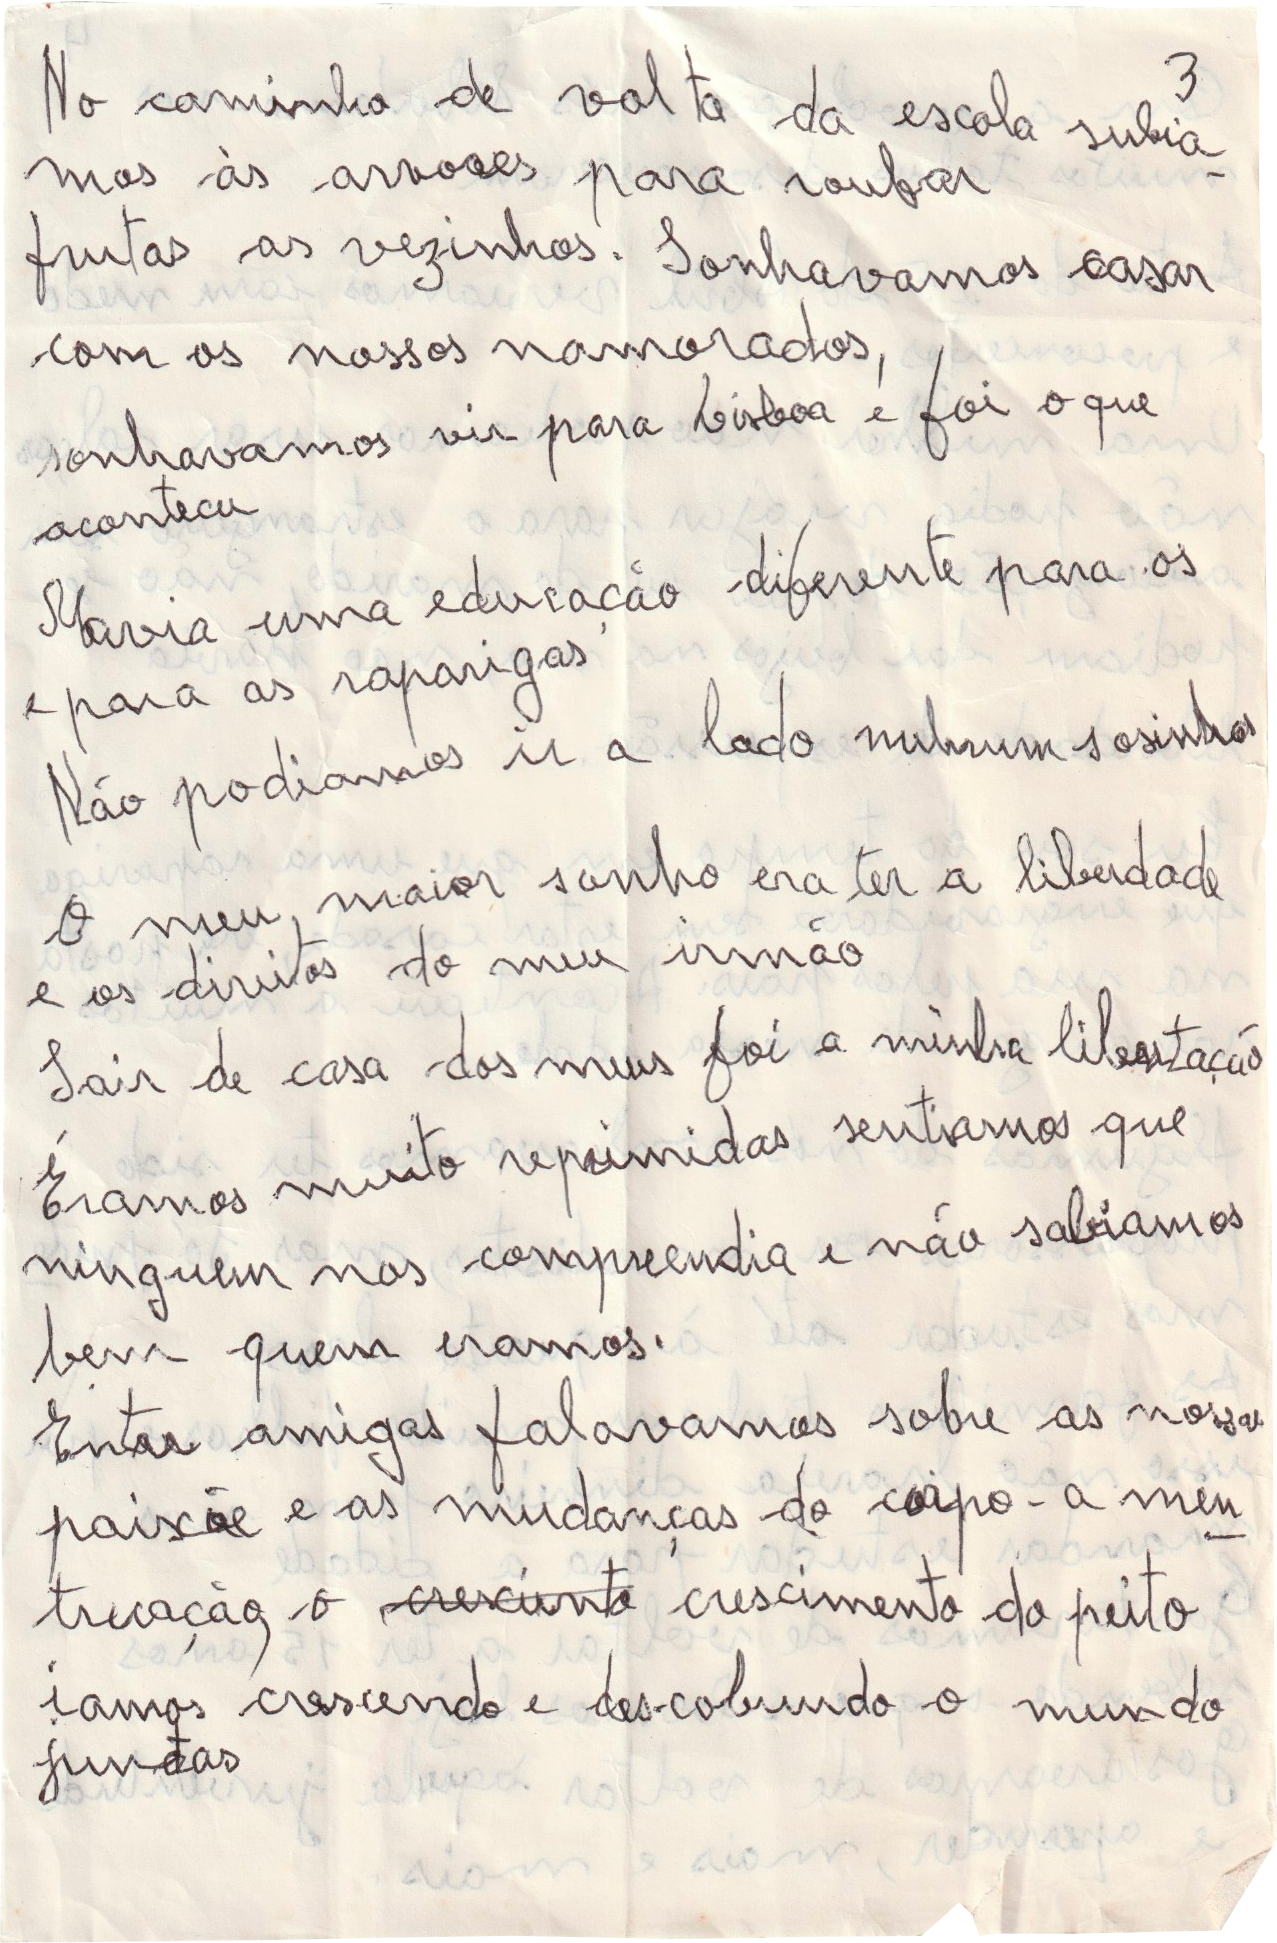 3
No caminho de volta da escola subia-
mos às arvores para roubar
frutas as vezinhos. Sonhavamos casar
com os nossos namorados,
sonhavamos vir para Lisboa e foi o que
aconteceu
Havia uma educação diferente para os
e para as raparigas
Não podiamos ir a lado nenhum sosinhas
O meu, maior sonho era ter a liberdade
e os direitos do meu irmão
Sair de casa dos meus foi a minha libertação
Éramos muito reprimidas sentiamos que
ninguem nos compreendia e não sabiamos
bem quem eramos.
Entre amigas falavamos sobre as nossas
paixõe e as mudanças do corpo - a men
truação, o crescimento do peito
iamos crescendo e descobrindo o mundo
juntas